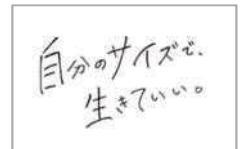 自分のサイズで、
生きていい。